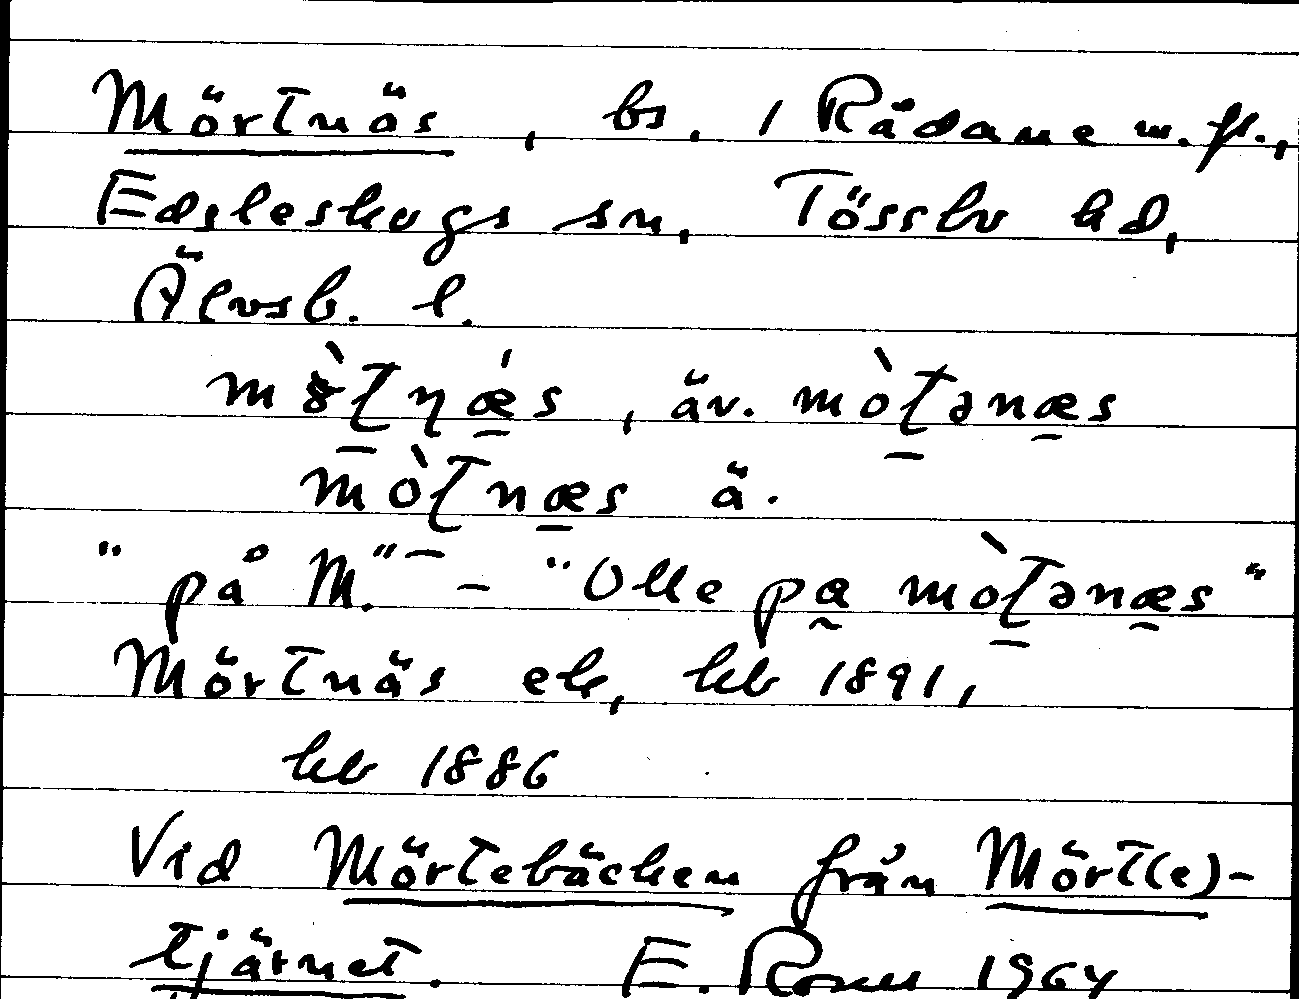 Mörtnäs, bs. i Rådane m.fl.,
Edsleskogs sn, Tössbo hd,
Älvsb. l.
mø̀ʈɳǽs, äv. mòʈənæs
mòʈnæs ä.
"på M." – "Olle pa mòʈənæs"
Mörtnäs ek, kb 1891,
kb 1886
Vid Mörtebäcken från Mört(e)-
tjärnet. E. 1964